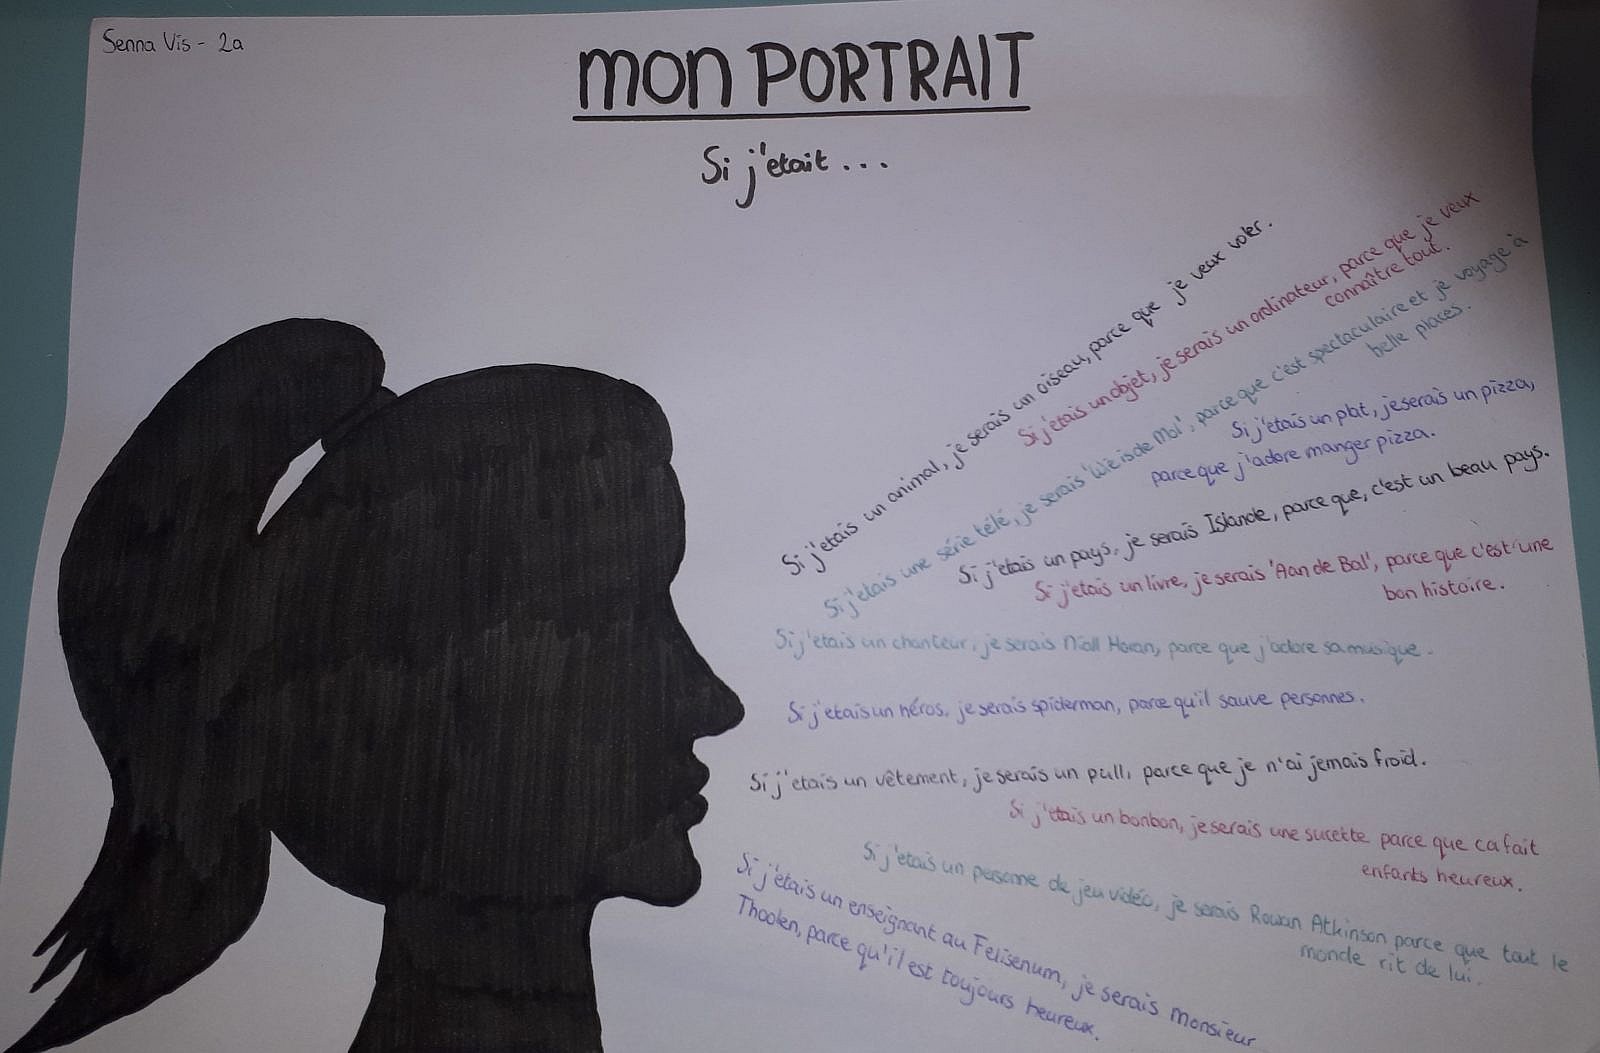 Senna Vis - 2a
mon PORTRAIT
Si j'etait ...
Si j'etais un animal, je serais un oiseau, parce que je veux voler.
Si j'etais un objet, je serais un ordinateur, parce que je veux
connaître tout.
Si j'etais une série télé, je serais 'Wie is de Mol', parce que c'est spectaculaire et je voyage à
belle places.
Si j'etais un plat, je serais un pizza,
parce que j'adore manger pizza.
Si j'etais un pays, je serais Islande, parce que, c'est un beau pays.
Si j'etais un livre, je serais 'Aan de Bal', parce que c'est une
bon histoire.
Si j'etais un chanteur, je serais Niall Horan, parce que j'adore sa musique.
Si j'etais un héros, je serais spiderman, parce qu'il sauve personnes.
Si j'etais un vêtement, je serais un pull, parce que je n'ai jamais froid.
Si j'etais un bonbon, je serais une sucette parce que ca fait
enfants heureux.
Si j'etais un personne de jeu vidéo, je serais Rowan Atkinson parce que tout le
monde rit de lui.
Si j'étais un enseignant au Felisenum, je serais monsieur
Thoolen, parce qu'il est toujours heureux.